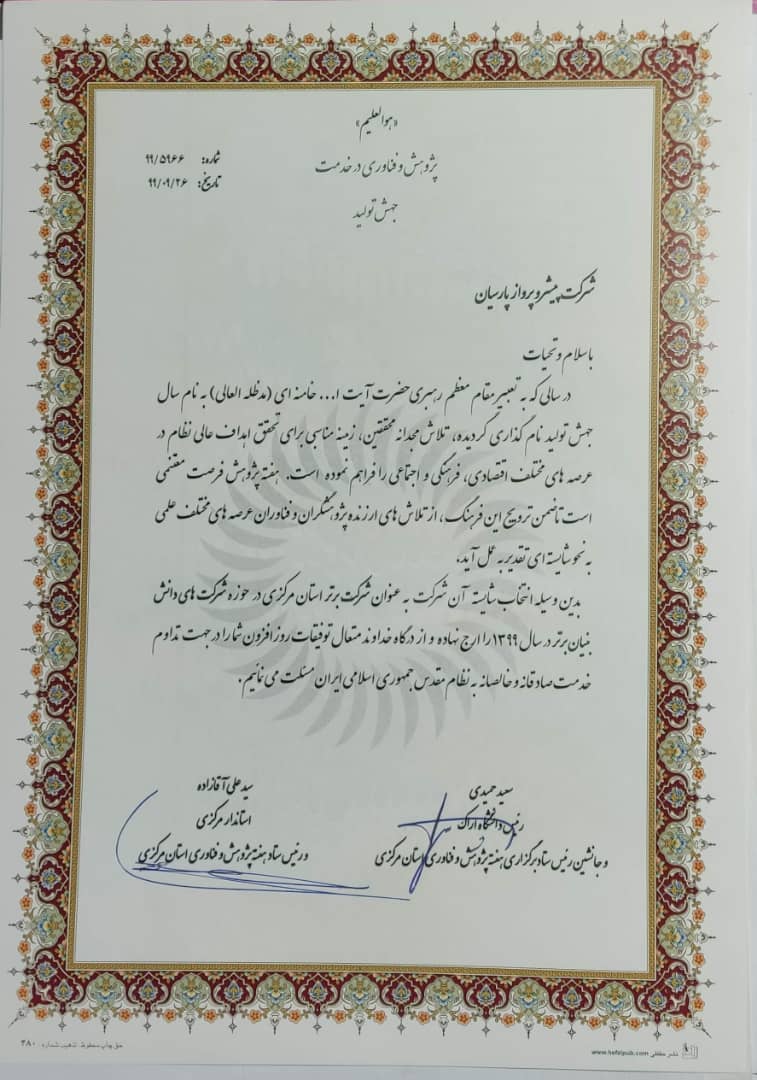 «هوالعلیم»
پژوهش و فناوری در خدمت
جهش تولید
شماره: ۹۹/۵۹۶۶
تاریخ: ۹۹/۰۹/۲۶
شرکت پیشرو پرواز پارسیان
با سلام و تحیات
در سالی که به تعبیر مقام معظم رهبری حضرت آیت ا... خامنه ای (مدظله العالی) به نام سال
جهش تولید نام گذاری گردیده، تلاش مجدانه محققین، زمینه مناسبی برای تحقق اهداف عالی نظام در
عرصه های مختلف اقتصادی، فرهنگی و اجتماعی را فراهم نموده است. هفته پژوهش فرصت مغتنمی
است تا ضمن ترویج این فرهنگ، از تلاش های ارزنده پژوهشگران و فناوران عرصه های مختلف علمی
به نحو شایسته ای تقدیر به عمل آید.
بدین وسیله انتخاب شایسته آن شرکت به عنوان شرکت برتر استان مرکزی در حوزه شرکت های دانش
بنیان برتر در سال ۱۳۹۹ را ارج نهاده و از درگاه خداوند متعال توفیقات روز افزون شما را در جهت تداوم
خدمت صادقانه و خالصانه به نظام مقدس جمهوری اسلامی ایران مسئلت می نمائیم.
سعید حمیدی
رئیس دانشگاه اراک
و جانشین رئیس ستاد برگزاری هفته پژوهش و فناوری استان مرکزی
سید علی آقازاده
استاندار مرکزی
و رئیس ستاد هفته پژوهش و فناوری استان مرکزی
حق چاپ محفوظ. تذهیب شماره: ۴۸۰
www.hafezpub.com نشر حافظ